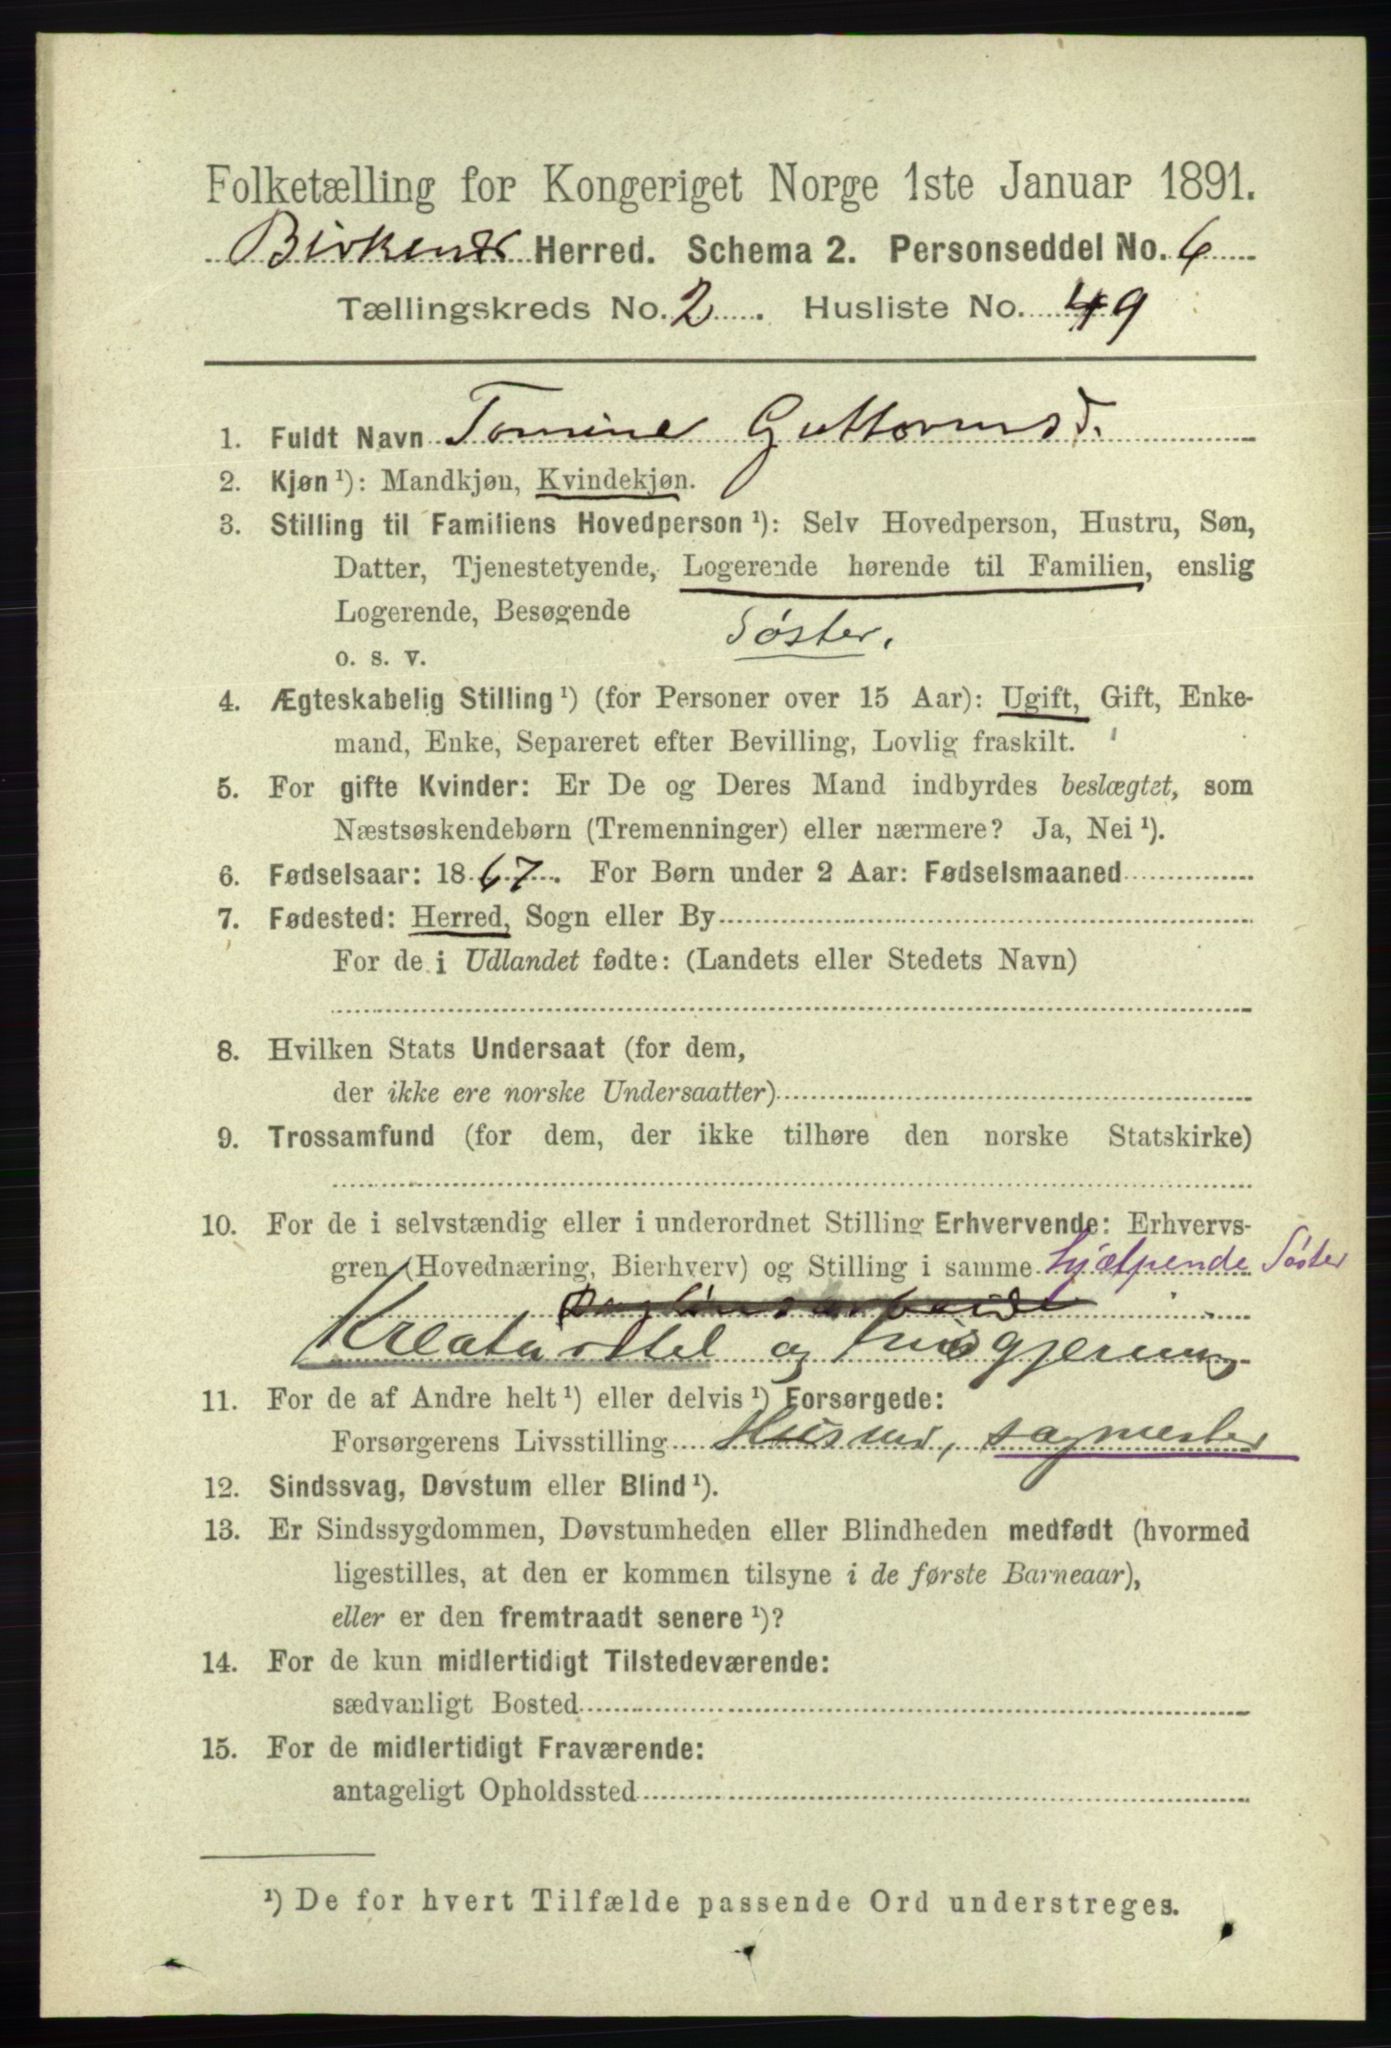 Folketælling for Kongeriget Norge 1ste Januar 1891.
Birkenes Herred. Schema 2. Personseddel No. 6
Tællingskreds No. 2. Husliste No. 49
1. Fuldt Navn Tomine Guttormsd.
2. Kjøn ¹): Mandkjøn, Kvindekjøn.
3. Stilling til Familiens Hovedperson ¹): Selv Hovedperson, Hustru, Søn,
Datter, Tjenestetyende, Logerende hørende til Familien, enslig
Logerende, Besøgende
Søster.
o. s. v.
4. Ægteskabelig Stilling ¹) (for Personer over 15 Aar): Ugift, Gift, Enke-
mand, Enke, Separeret efter Bevilling, Lovlig fraskilt.
5. For gifte Kvinder: Er De og Deres Mand indbyrdes beslægtet, som
Næstsøskendebørn (Tremenninger) eller nærmere? Ja, Nei ¹).
6. Fødselsaar: 1867. For Børn under 2 Aar: Fødselsmaaned
7. Fødested: Herred, Sogn eller By
For de i Udlandet fødte: (Landets eller Stedets Navn)
8. Hvilken Stats Undersaat (for dem,
der ikke ere norske Undersaatter)
9. Trossamfund (for dem, der ikke tilhøre den norske Statskirke)
10. For de i selvstændig eller i underordnet Stilling Erhvervende: Erhvervs-
gren (Hovednæring, Bierhverv) og Stilling i samme hjælpende Søster
Kreaturstel og husgjerning
11. For de af Andre helt ¹) eller delvis ¹) Forsørgede:
Forsørgerens Livsstilling Husmd, sagmester
12. Sindssvag, Døvstum eller Blind ¹).
13. Er Sindssygdommen, Døvstumheden eller Blindheden medfødt (hvormed
ligestilles, at den er kommen tilsyne i de første Barneaar),
eller er den fremtraadt senere ¹)?
14. For de kun midlertidigt Tilstedeværende:
sædvanligt Bosted
15. For de midlertidigt Fraværende:
antageligt Opholdssted
¹) De for hvert Tilfælde passende Ord understreges.